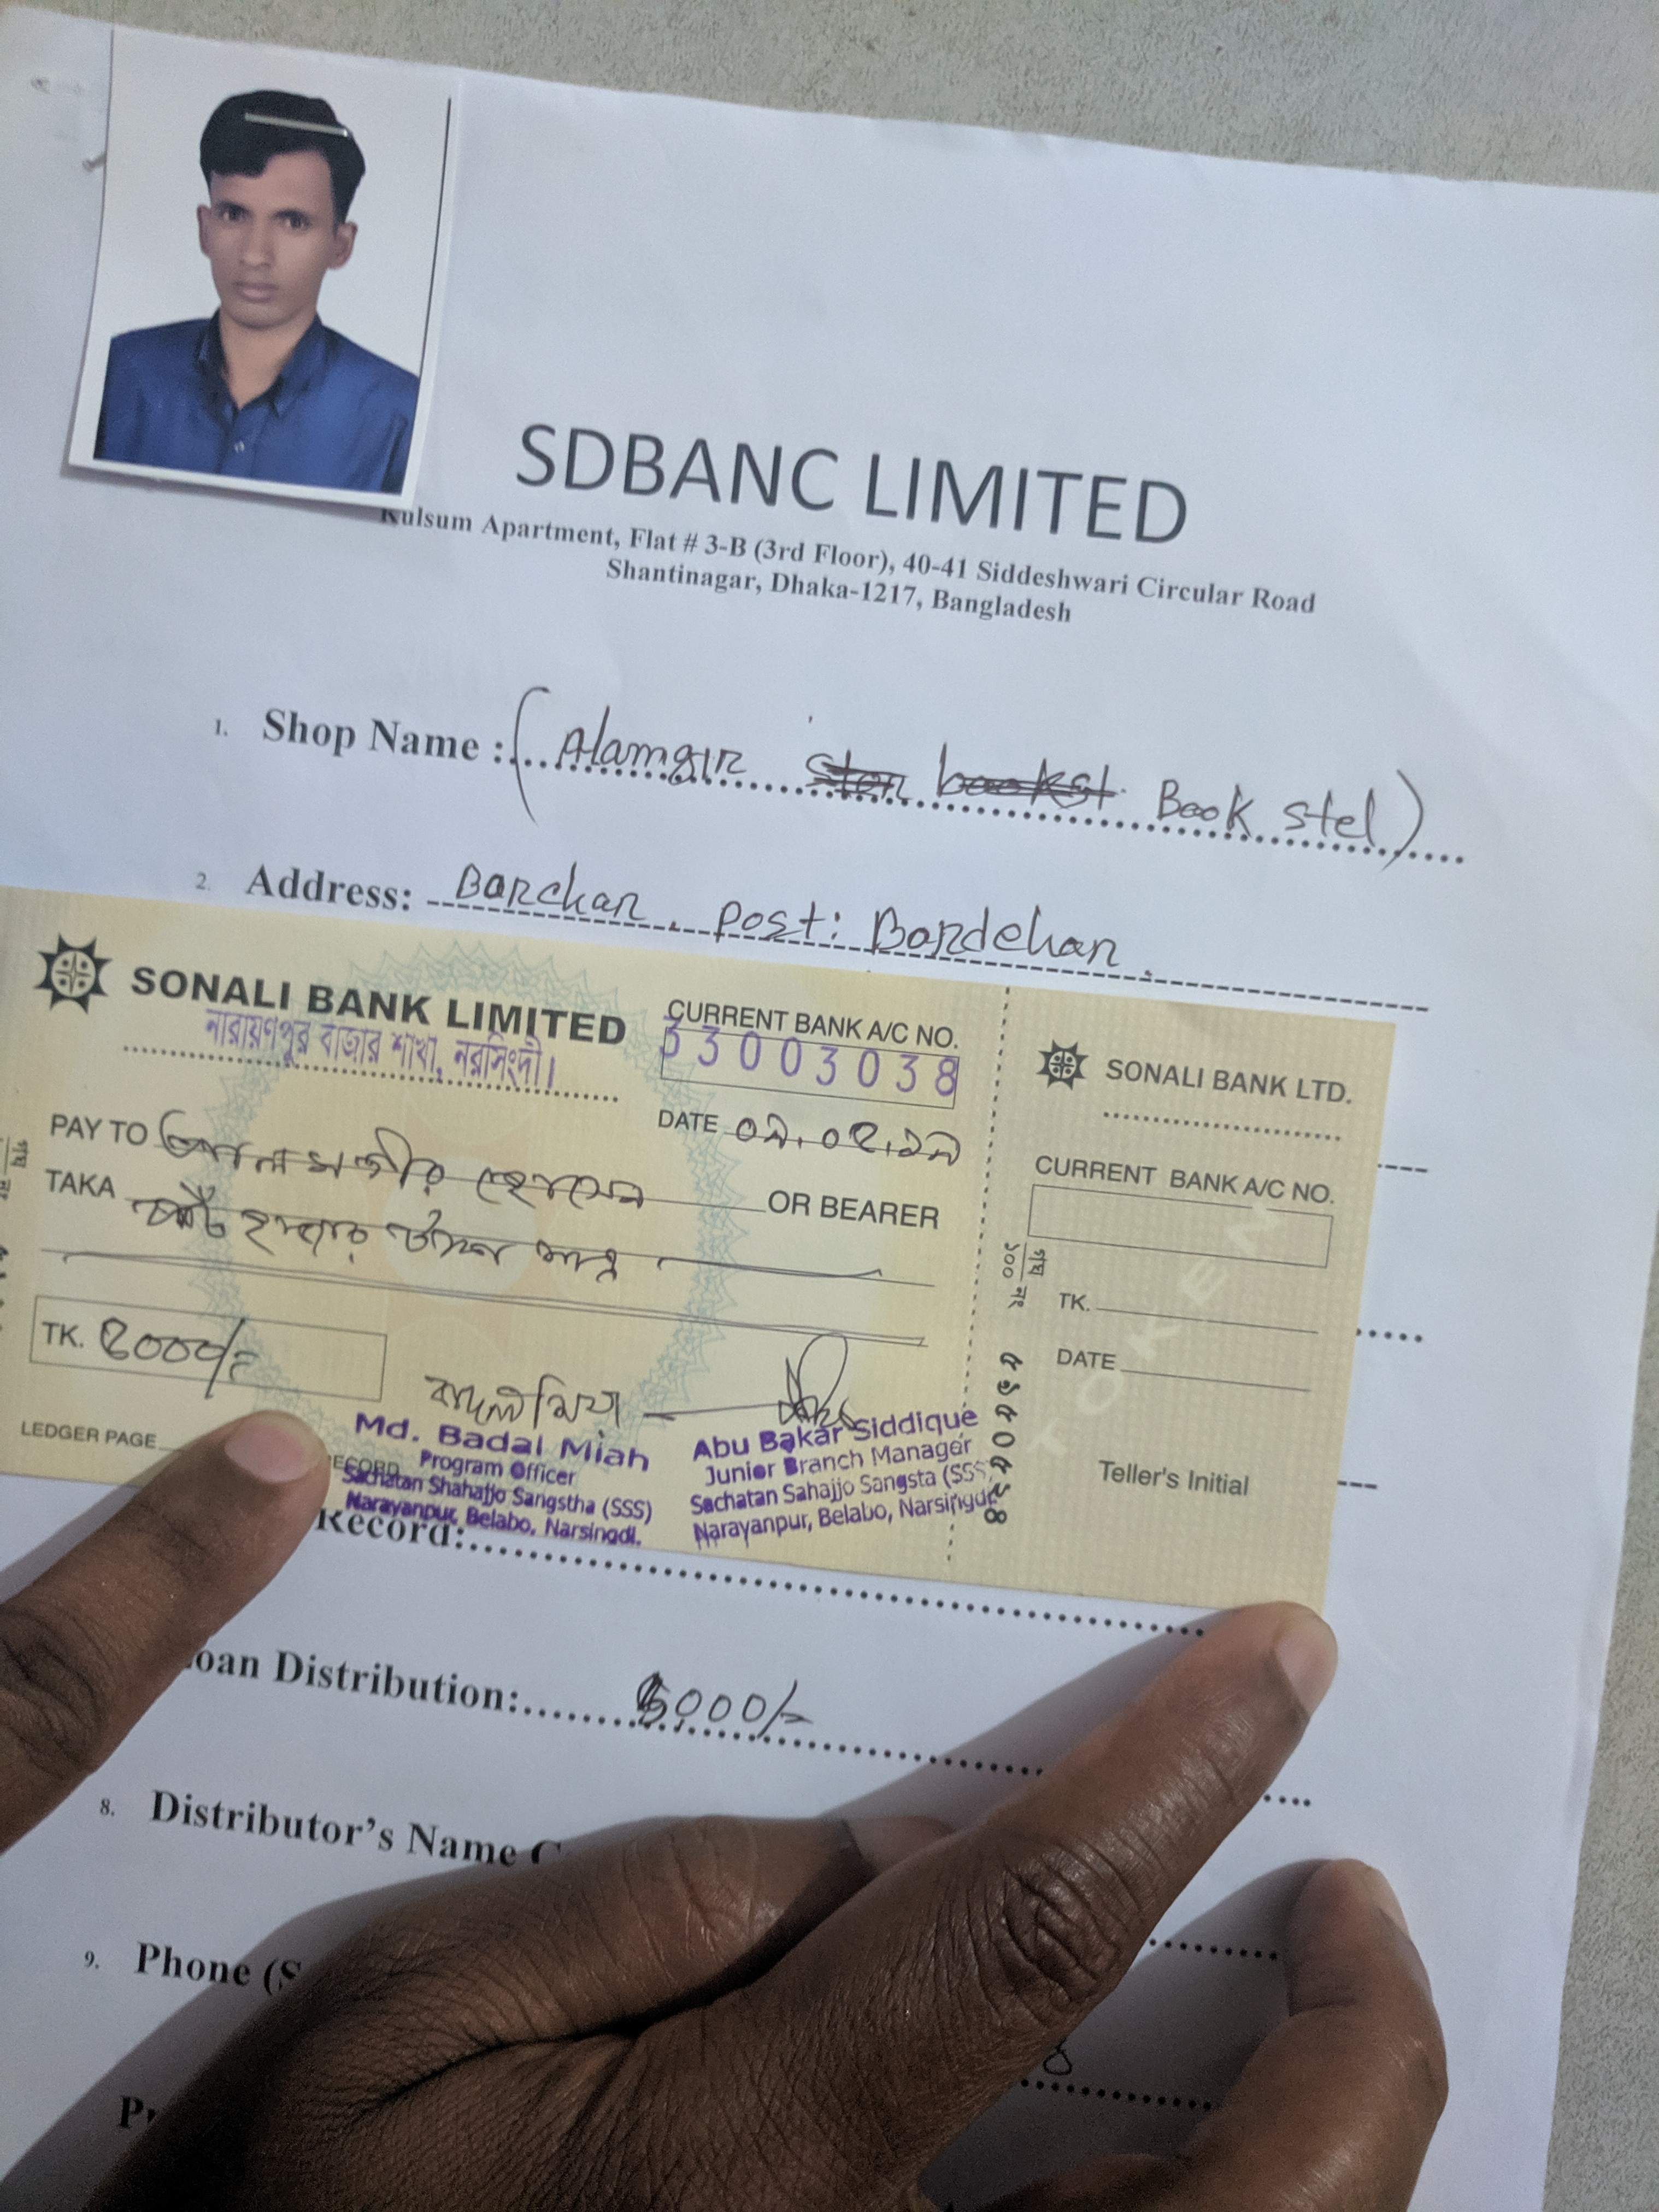 SDBANC LIMITED
Kulsum Apartment, Flat # 3-B (3rd Floor), 40-41 Siddeshwari Circular Road
Shantinagar, Dhaka-1217, Bangladesh
1. Shop Name : (Alamgir Book stel)
2. Address: post:
SONALI BANK LIMITED
নারায়ণপুর বাজার শাখা, নরসিংদী।
CURRENT BANK A/C NO.
33003038
DATE
PAY TO আলমগীর হোসেন OR BEARER
TAKA হাজার টাকা মাত্র
TK. ৫০০০/=
LEDGER PAGE
বাদল মিয়া
Md. Badal Miah
Program Officer
Sachatan Shahajjo Sangstha (SSS)
Narayanpur, Belabo, Narsingdi.
Abu Bakar Siddique
Junior Branch Manager
Sachatan Sahajjo Sangsta (SSS)
Narayanpur, Belabo, Narsingdi
SONALI BANK LTD.
CURRENT BANK A/C NO.
TK.
DATE
TOKEN
Teller's Initial
Record:
Loan Distribution: 5000/-
8. Distributor's Name
9. Phone